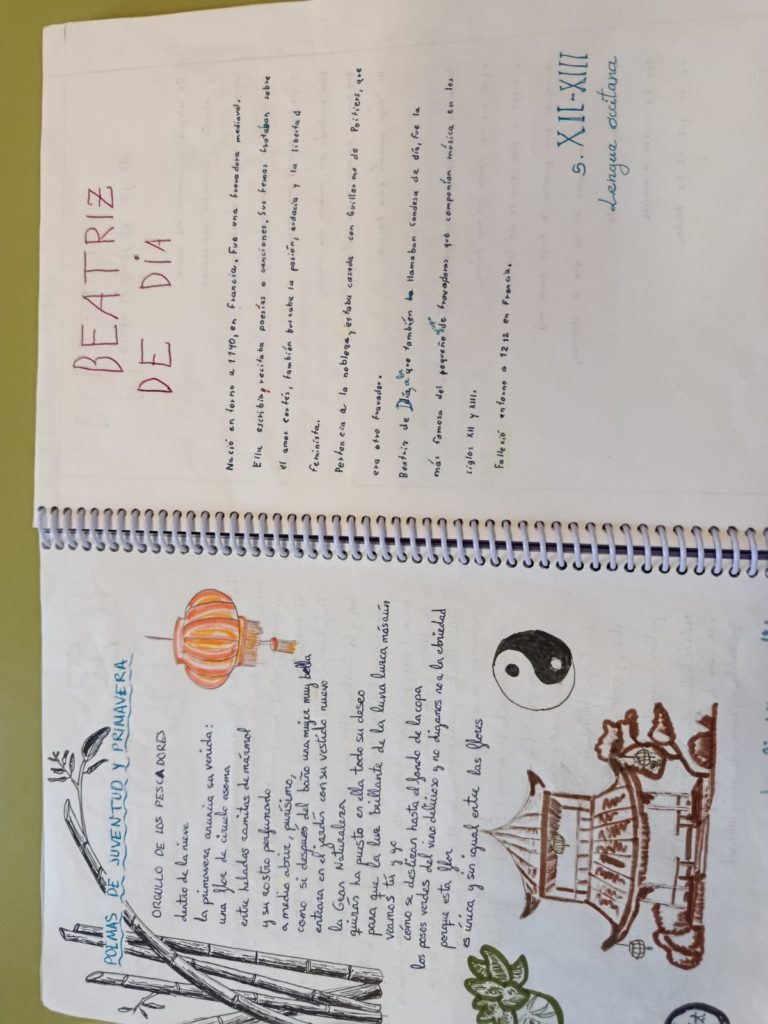 POEMAS DE JUVENTUD Y PRIMAVERA
ORGULLO DE LOS PESCADORES
dentro de la nieve
la primavera anuncia su venida:
una flor de ciruelo asoma
entre heladas ramitas de mármol
y su rostro perfumado
a medio abrir, purísimo,
como si después del baño una mujer muy bella
entrara en el jardín con su vestido nuevo
la Gran Naturaleza
quizás ha puesto en ella todo su deseo
para que la luz brillante de la luna luzca más aún
veamos tú y yo
cómo se deslizan hasta el fondo de la copa
los posos verdes del vino delicioso y no digamos no a la ebriedad
porque esta flor
es única y sin igual entre las flores
BEATRIZ
DE DÍA
Nació en torno a 1140, en Francia. Fue una trovadora medieval.
Ella escribía y recitaba poesías o canciones. Sus temas trataban sobre
el amor cortés, también buscaba la pasión, audacia y la libertad
feminista.
Pertencia a la nobleza, y estaba casada con Guillermo de Poitiers, que
era otro trovador.
Beatriz de Día, a la que también llamaban condesa de día, fue la
más famosa del pequeño de trovadoras que componían música en los
siglos XII y XIII.
Falleció entorno a 1212 en Francia.
S. XII-XIII
Lengua occitana